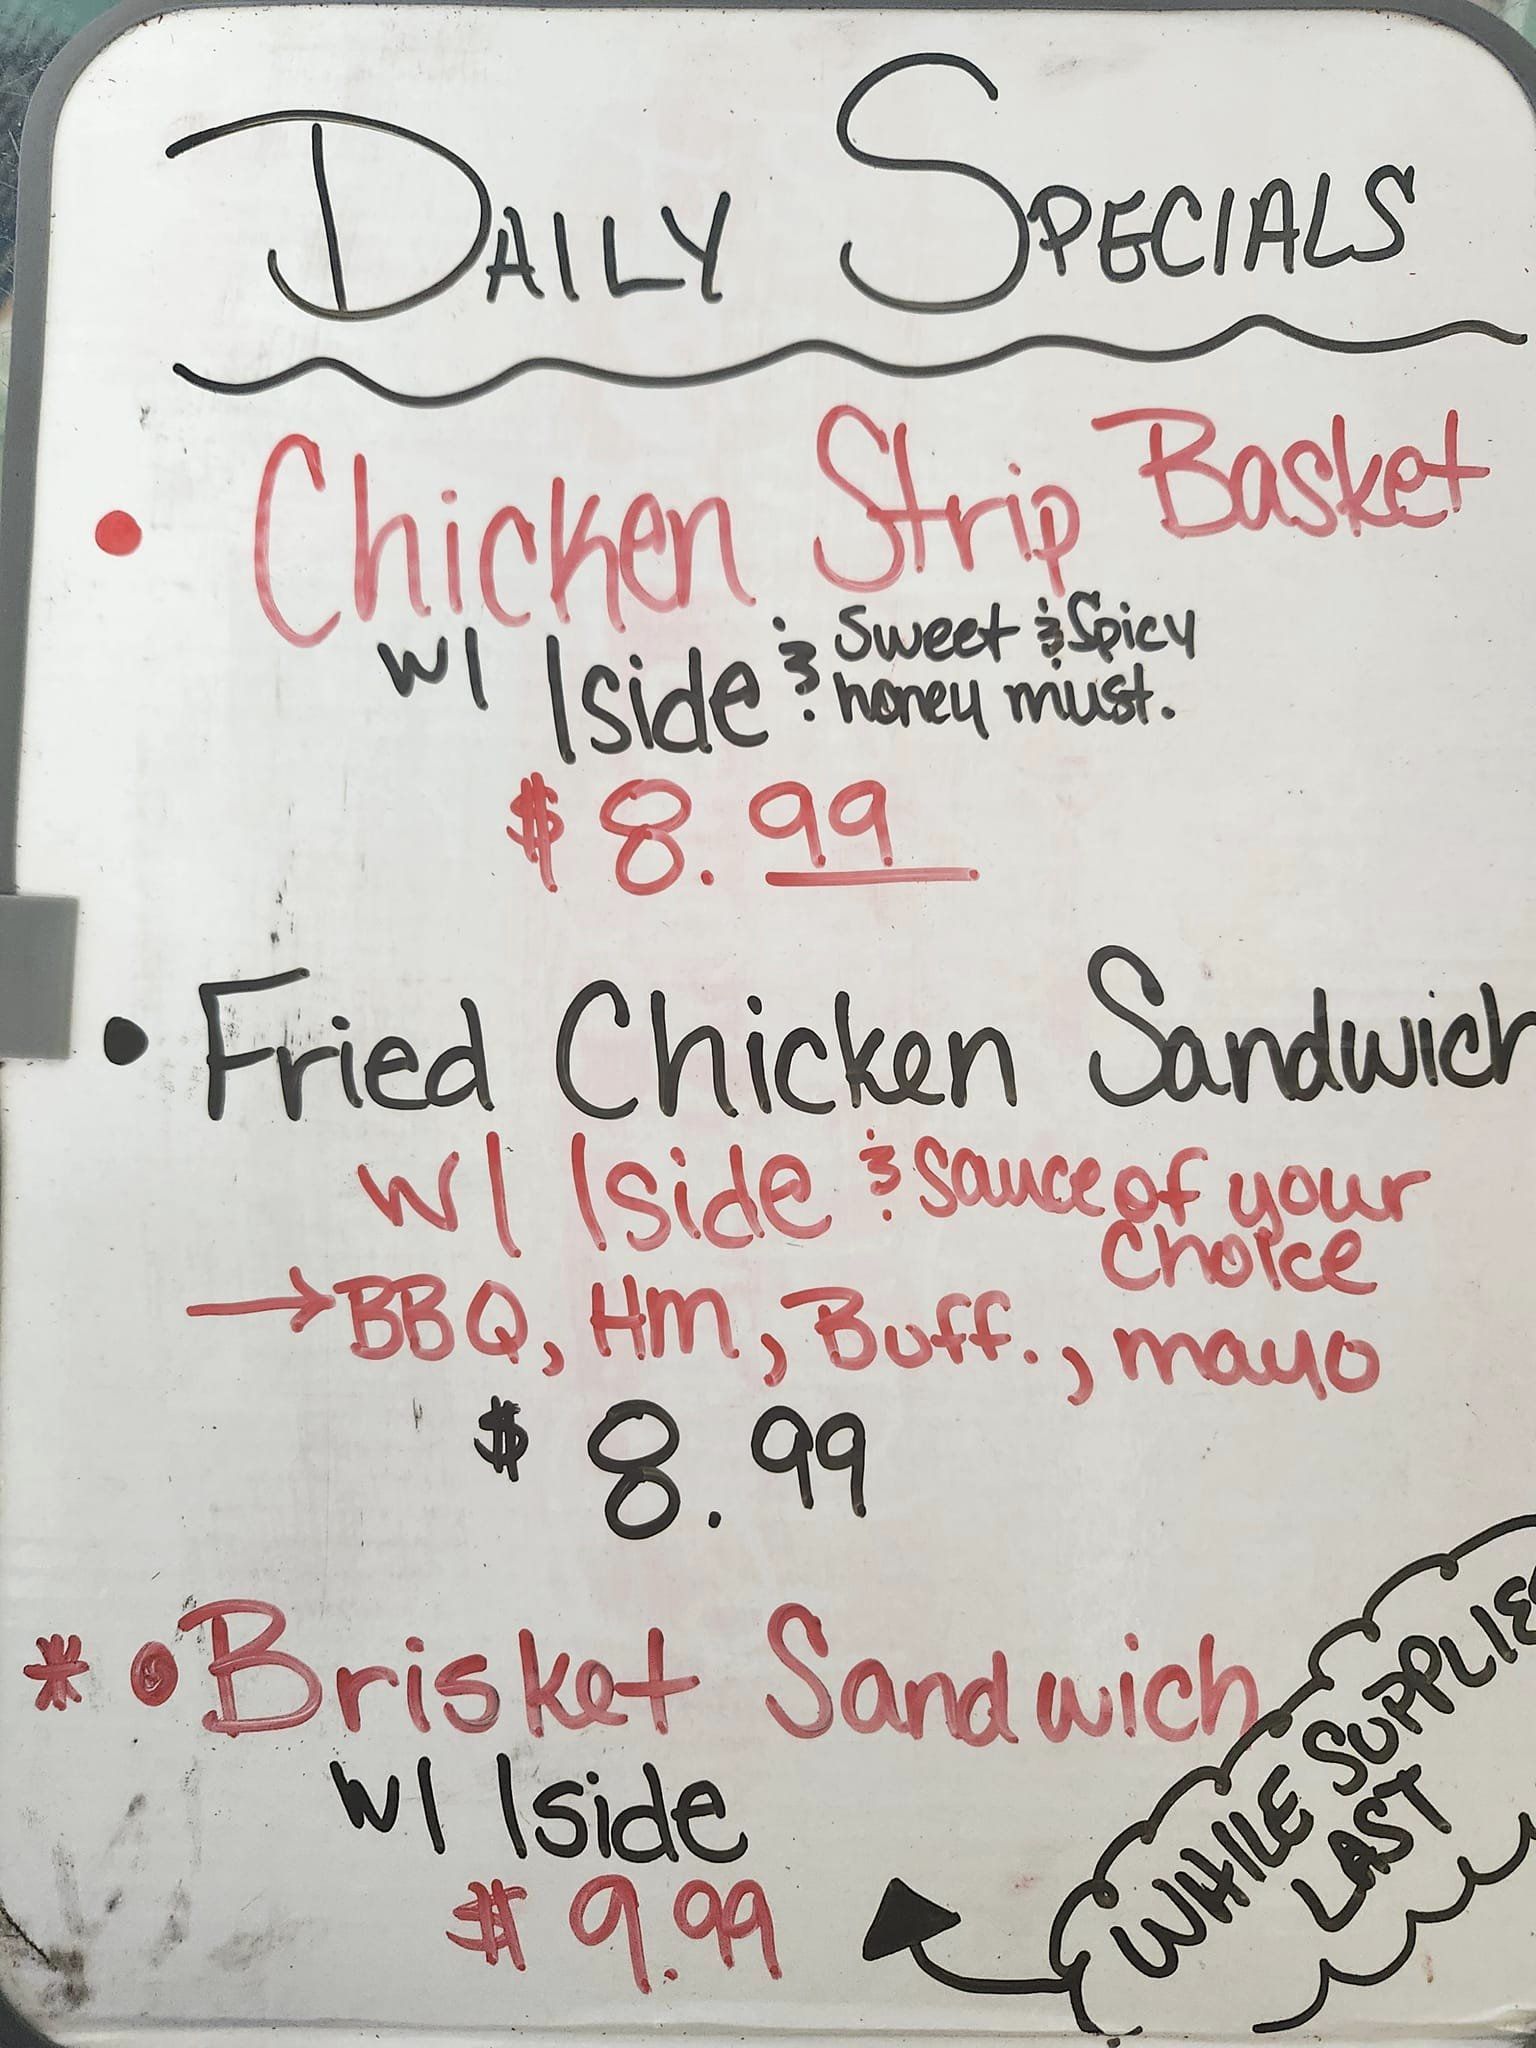 DAILY SPECIALS
• Chicken Strip Basket
w/ 1side & sweet & Spicy
honey must.
$8.99
• Fried Chicken Sandwich
w/ 1side & sauce of your
choice
→ BBQ, Hm, Buff., mayo
$8.99
* • Brisket Sandwich
w/ 1side
$9.99
WHILE SUPPLIES
LAST